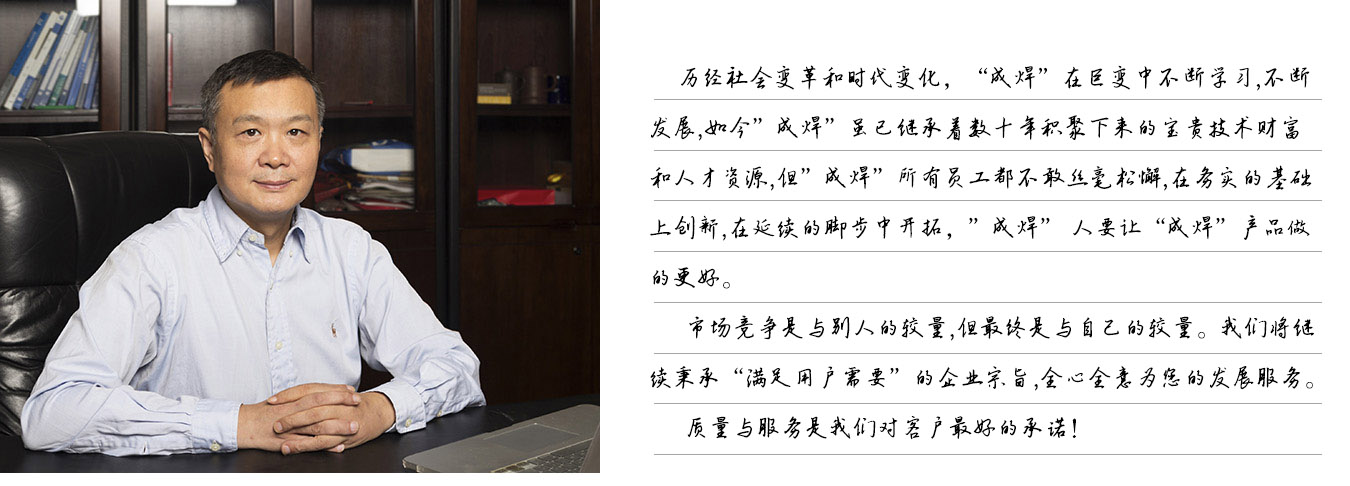 历经社会变革和时代变化，“成焊”在巨变中不断学习,不断
发展,如今”成焊”虽已继承着数十年积聚下来的宝贵技术财富
和人才资源,但”成焊”所有员工都不敢丝毫松懈,在务实的基础
上创新,在延续的脚步中开拓，”成焊” 人要让“成焊”产品做
的更好。
市场竞争是与别人的较量,但最终是与自己的较量。我们将继
续秉承“满足用户需要”的企业宗旨,全心全意为您的发展服务。
质量与服务是我们对客户最好的承诺！